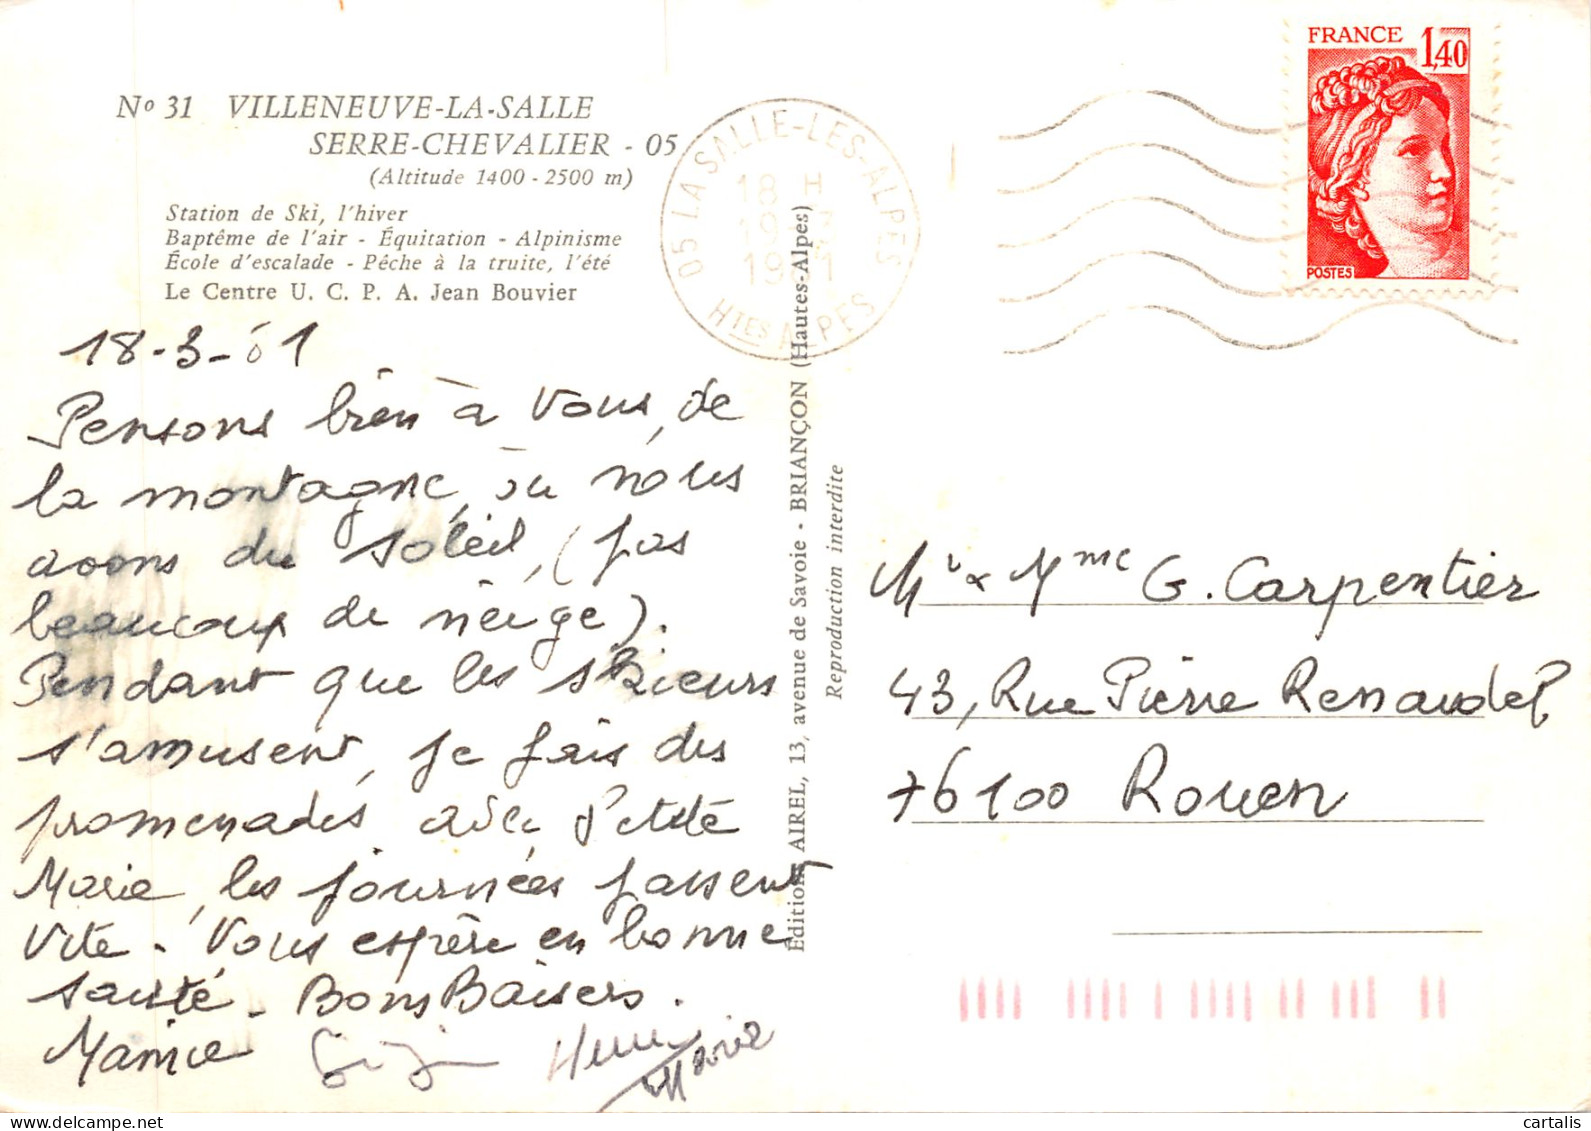 No 31 VILLENEUVE-LA-SALLE
SERRE-CHEVALIER - 05
(Altitude 1400 - 2500 m)
Station de Ski, l'hiver
Baptême de l'air - Équitation - Alpinisme
École d'escalade - Pêche à la truite, l'été
Le Centre U. C. P. A. Jean Bouvier
18-3-81
Pensons bien à vous, de
la montagne, où nous
avons du soleil, (pas
beaucoup de neige).
Pendant que les skieurs
s'amusent, je fais des
promenades avec Petite
Marie, les journées passent
vite - Vous espère en bonne
santé - Bons Baisers.
Henri
Marie
05 LA SALLE-LES-ALPES
18 H
Htes ALPES
Éditions AIREL, 13, avenue de Savoie - BRIANÇON (Hautes-Alpes)
Reproduction interdite
FRANCE 1,40
POSTES
Mr & Mme G. Carpentier
43, Rue Pierre Renaudel
76100 Rouen
cartalis